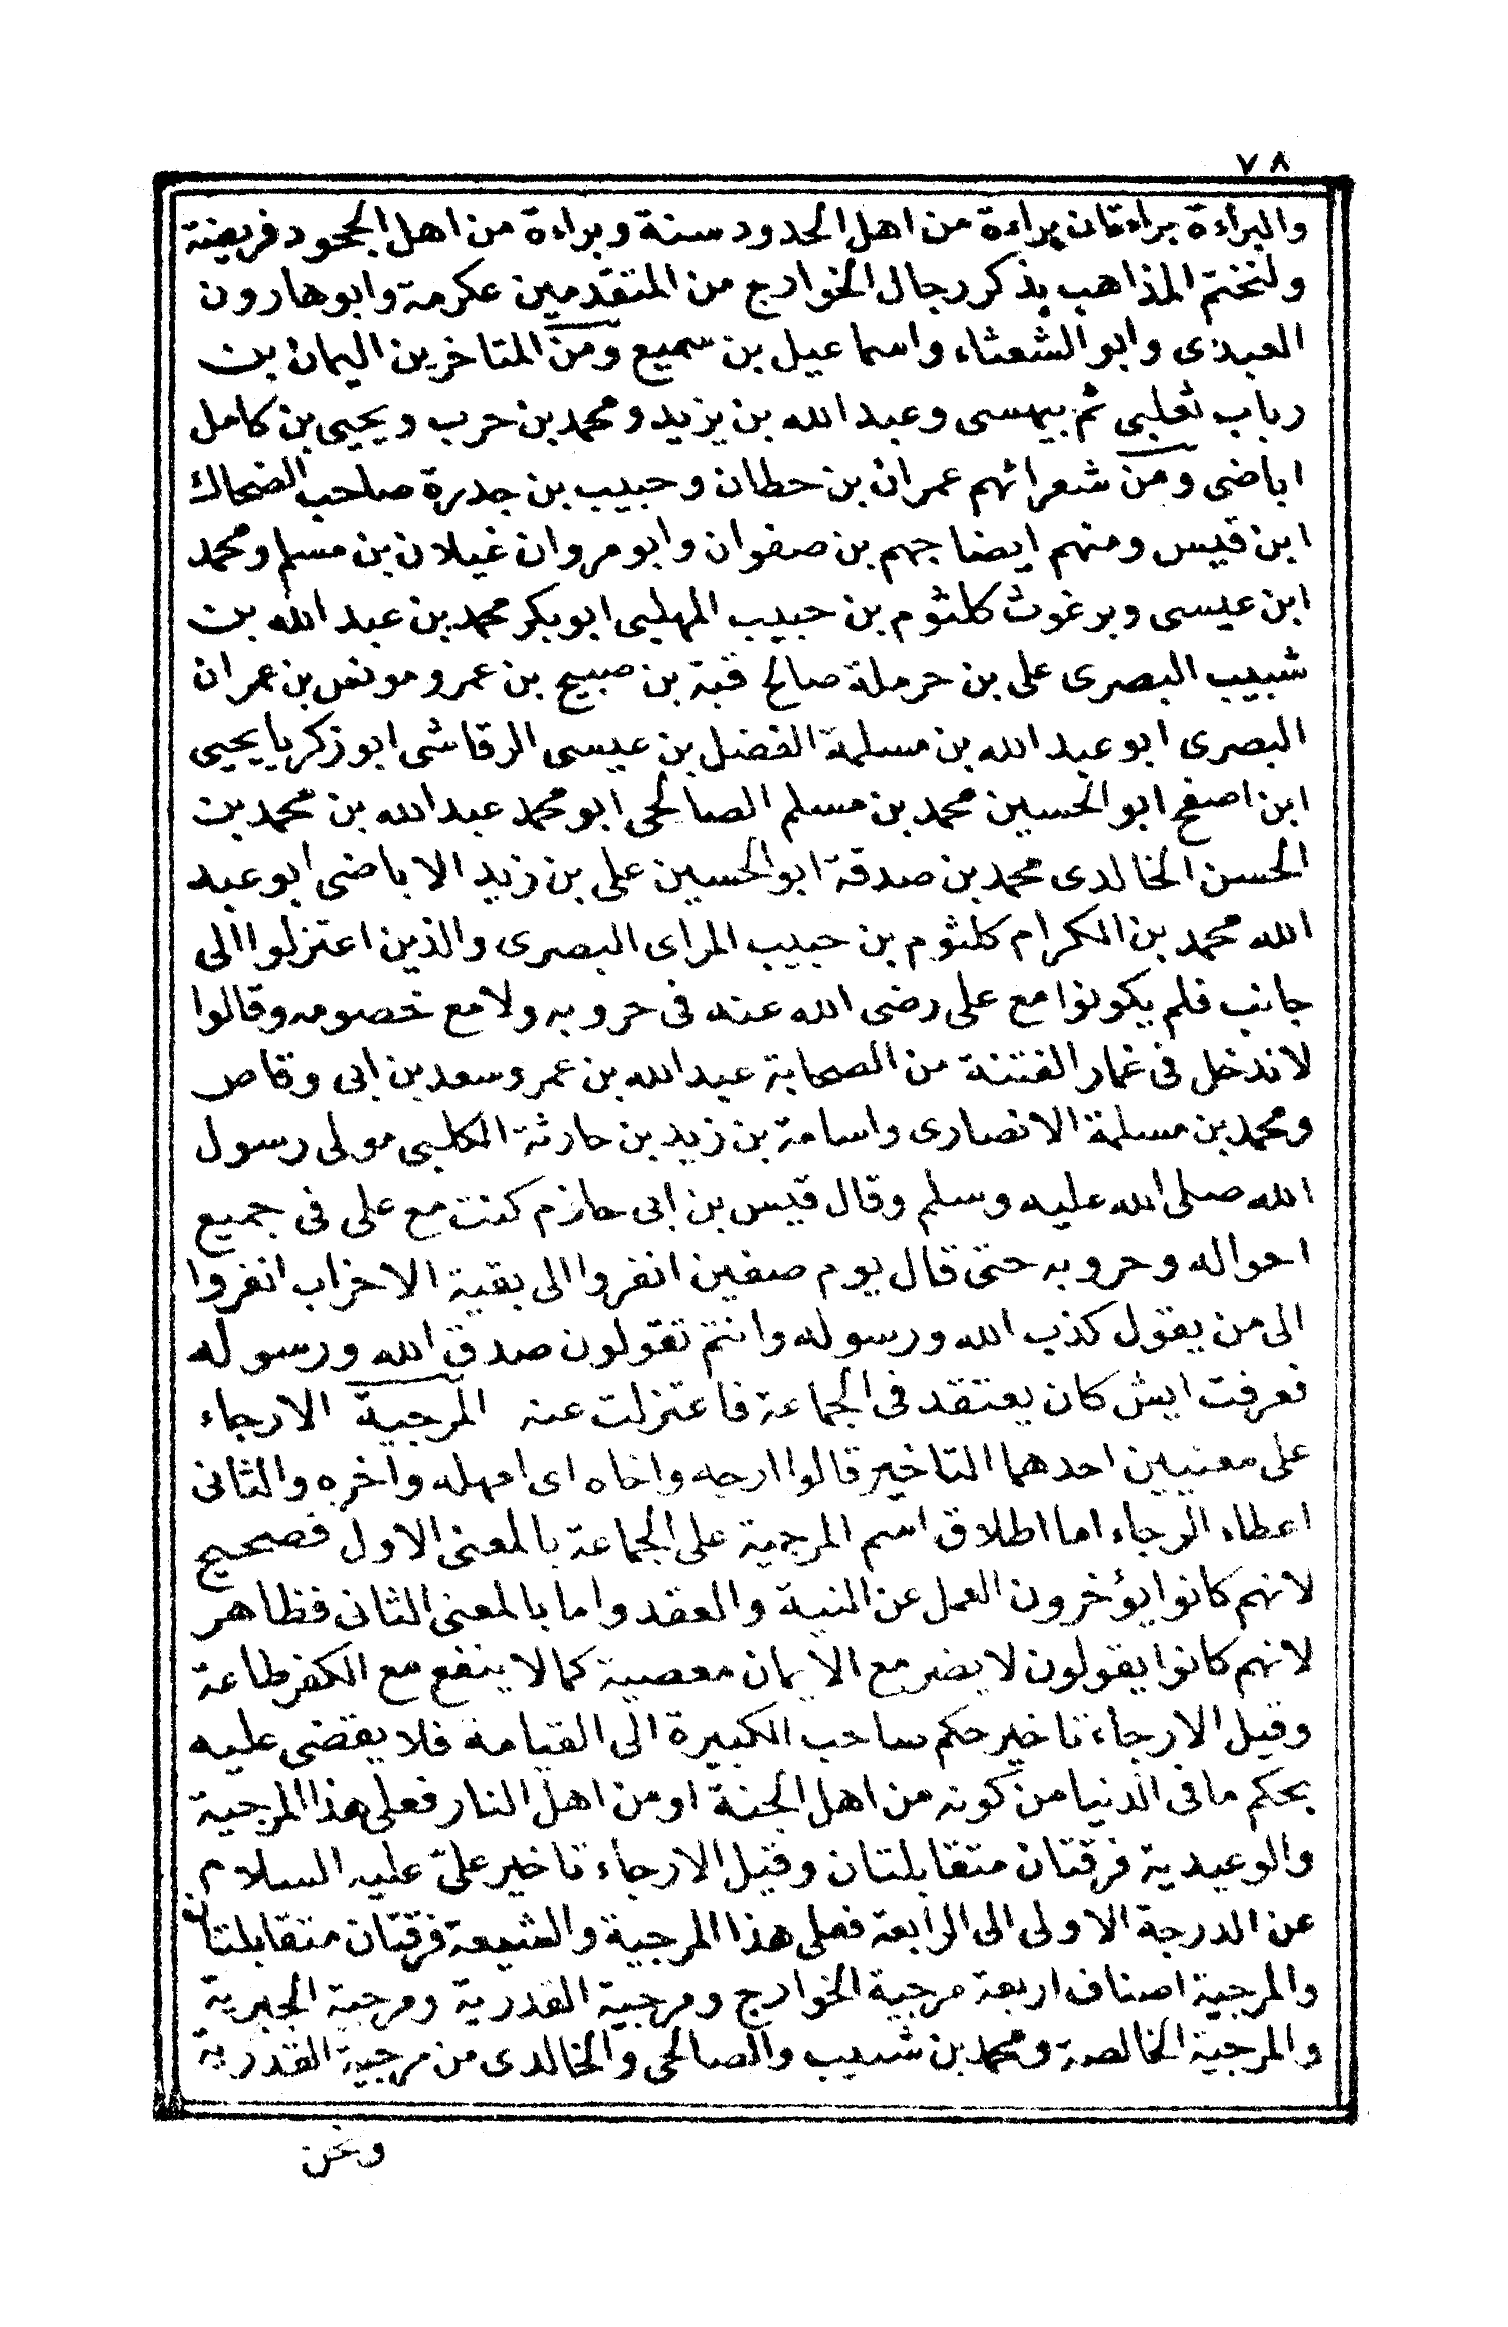 ٧٨
والبراءة براءتان براءة من اهل الحدود سنة وبراءة من اهل الجحود فريضة
ولنختم المذاهب بذكر رجال الخوارج من المتقدمين عكرمة وابو هارون
العبدى وابو الشعثاء واسماعيل بن سميع ومن المتاخرين اليمان بن
رباب ثعلبى ثم بيهسى وعبد الله بن يزيد ومحمد بن حرب ويحيى بن كامل
اباضى ومن شعرائهم عمران بن حطان وحبيب بن جدرة صاحب الضحاك
ابن قيس ومنهم ايضا جهم بن صفوان وابو مروان غيلان بن مسلم ومحمد
ابن عيسى وبرغوث كلثوم بن حبيب المهلبى ابو بكر محمد بن عبد الله بن
شبيب البصرى على بن حرملة صالح قبة بن صبيح بن عمرو مونس بن عمران
البصرى ابو عبد الله بن مسلمة الفضل بن عيسى الرقاشى ابو زكريا يحيى
ابن اصفح ابو الحسين محمد بن مسلم الصالحى ابو محمد عبد الله بن محمد بن
الحسن الخالدى محمد بن صدقة ابو الحسين على بن زيد الاباضى ابو عبد
الله محمد بن الكرام كلثوم بن حبيب المراى البصرى والذين اعتزلوا الى
جانب فلم يكونوا مع على رضى الله عنه فى حروبه ولا مع خصومه وقالوا
لا ندخل فى غمار الفتنة من الصحابة عبد الله بن عمر وسعد بن ابى وقاص
ومحمد بن مسلمة الانصارى واسامة بن زيد بن حارثة الكلبى مولى رسول
الله صلى الله عليه وسلم وقال قيس بن ابى حازم كنت مع على فى جميع
احواله وحروبه حتى قال يوم صفين انفروا الى بقية الاحزاب انفروا
الى من يقول كذب الله ورسوله وانتم تقولون صدق الله ورسوله
فعرفت ايش كان يعتقد فى الجماعة فاعتزلت عنه المرجية الارجاء
على معنيين احدهما التاخير قالوا ارجه واخاه اى امهله واخره والثانى
اعطاء الرجاء اما اطلاق اسم المرجية على الجماعة بالمعنى الاول فصحيح
لانهم كانوا يؤخرون العمل عن النية والعقد واما بالمعنى الثانى فظاهر
لانهم كانوا يقولون لا يضر مع الايمان معصية كما لا ينفع مع الكفر طاعة
وقيل الارجاء تاخير حكم صاحب الكبيرة الى القيامة فلا يقضى عليه
بحكم ما فى الدنيا من كونه من اهل الجنة او من اهل النار فعلى هذا المرجية
والوعيدية فرقتان متقابلتان وقيل الارجاء تاخير علىّ عليه السلام
عن الدرجة الاولى الى الرابعة فعلى هذا المرجية والشيعة فرقتان متقابلتان
والمرجية اصناف اربعة مرجية الخوارج ومرجية القدرية ومرجية الجبرية
والمرجية الخالصة ومحمد بن شبيب والصالحى والخالدى من مرجية القدرية
ونحن